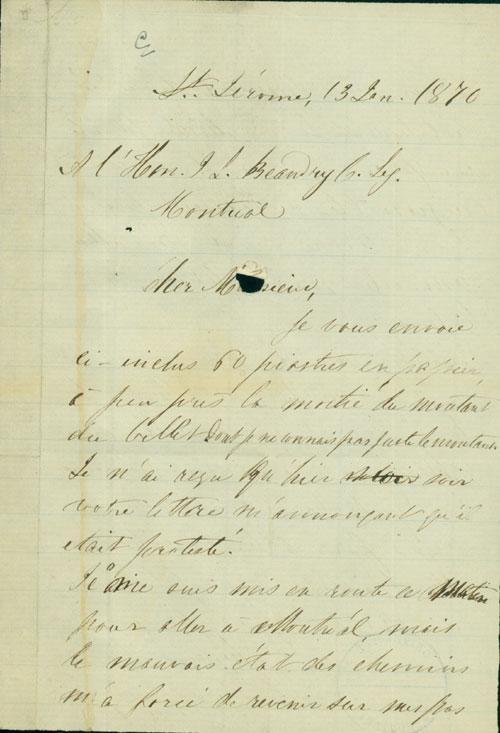 St. Jérome, 13 Jan. 1870
A l'Hon. J. L. Beaudry C. Leg.
Montréal
Cher Monsieur,
Je vous envoie
ci-inclus 60 piastres en papier,
à peu près la moitié du montant
du billet dont je ne connais pas juste le montant.
Je n'ai reçu qu'hier soir
votre lettre m'annonçant qu'il
était protesté.
Je me suis mis en route ce matin
pour aller à Montréal, mais
le mauvais état des chemins
m'a forcé de revenir sur mes pas